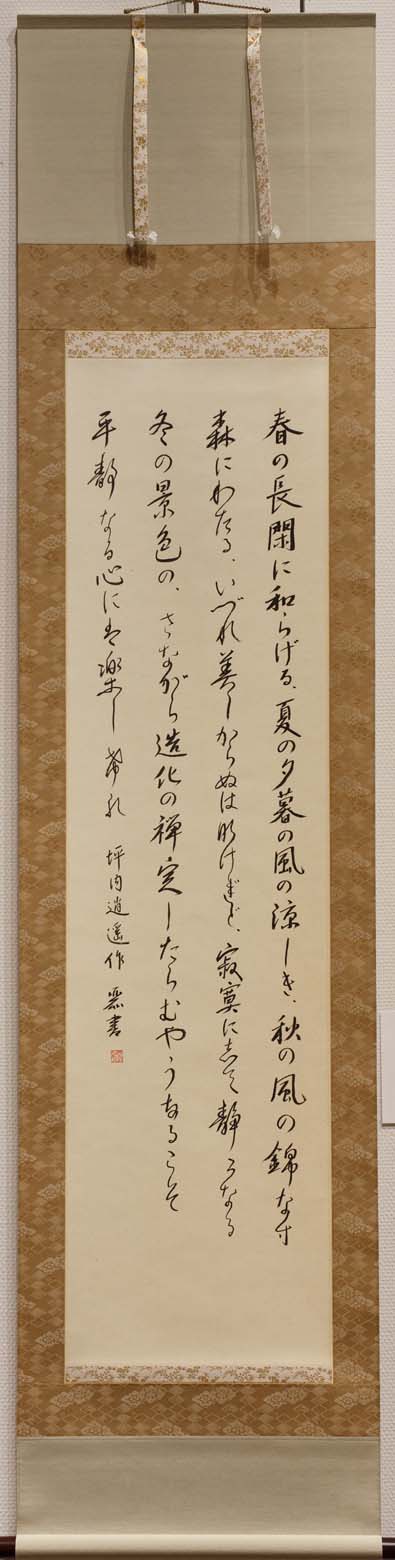 春の長閑に和らげる、夏の夕暮の風の涼しき、秋の風の錦なす
森にわたる、いづれ美しからぬは候はねど、寂寞にして静かなる
冬の景色の、さながら造化の禅定したらむやうなるこそ
平静なる心には楽しけれ 坪内逍遥作 書